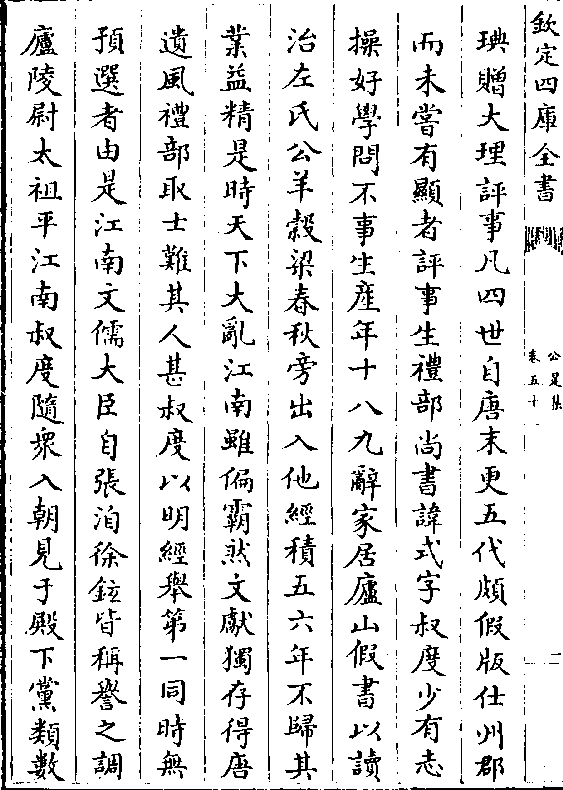 欽定四庫全書
公是集
卷五十一
二
琠贈大理評事凡四世自唐末更五代頗假版仕州郡
而未嘗有顯者評事生禮部尚書諱式字叔度少有志
操好學問不事生產年十八九辭家居廬山假書以讀
治左氏公羊穀梁春秋旁出入他經積五六年不歸其
業益精是時天下大亂江南雖偏霸然文獻獨存得唐
遺風禮部取士難其人甚叔度以明經舉第一同時無
預選者由是江南文儒大臣自張洎徐鉉皆稱譽之調
廬陵尉太祖平江南叔度隨衆入朝見于殿下黨類數